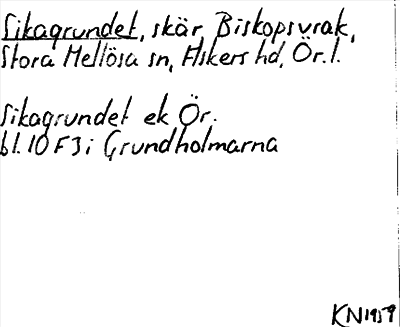 Sikagrundet, skär, Biskopsvrak,
Stora Mellösa sn, Askers hd, Ör. l.
Sikagrundet ek Ör.
bl. 10 F 3 i Grundholmarna
KN 1959